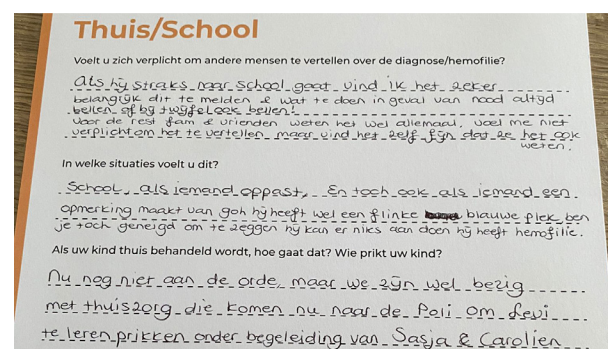 Thuis/School
Voelt u zich verplicht om andere mensen te vertellen over de diagnose/hemofilie?
Als hij straks naar school gaat vind ik het zeker
belangrijk dit te melden & wat te doen in geval van nood altijd
bellen of bij twijfel ook bellen!
Voor de rest fam & vrienden weten het wel allemaal. voel me niet
verplicht om het te vertellen maar vind het zelf fijn dat ze het ook
weten.
In welke situaties voelt u dit?
School, als iemand oppast, En toch ook als iemand een
opmerking maakt van goh hij heeft wel een flinke blauwe plek ben
je toch geneigd om te zeggen hij kan er niks aan doen hij heeft hemofilie.
Als uw kind thuis behandeld wordt, hoe gaat dat? Wie prikt uw kind?
Nu nog niet aan de orde, maar we zijn wel bezig
met thuiszorg die komen nu naar de Poli om Levi
te leren prikken onder begeleiding van Sasja & Carolien